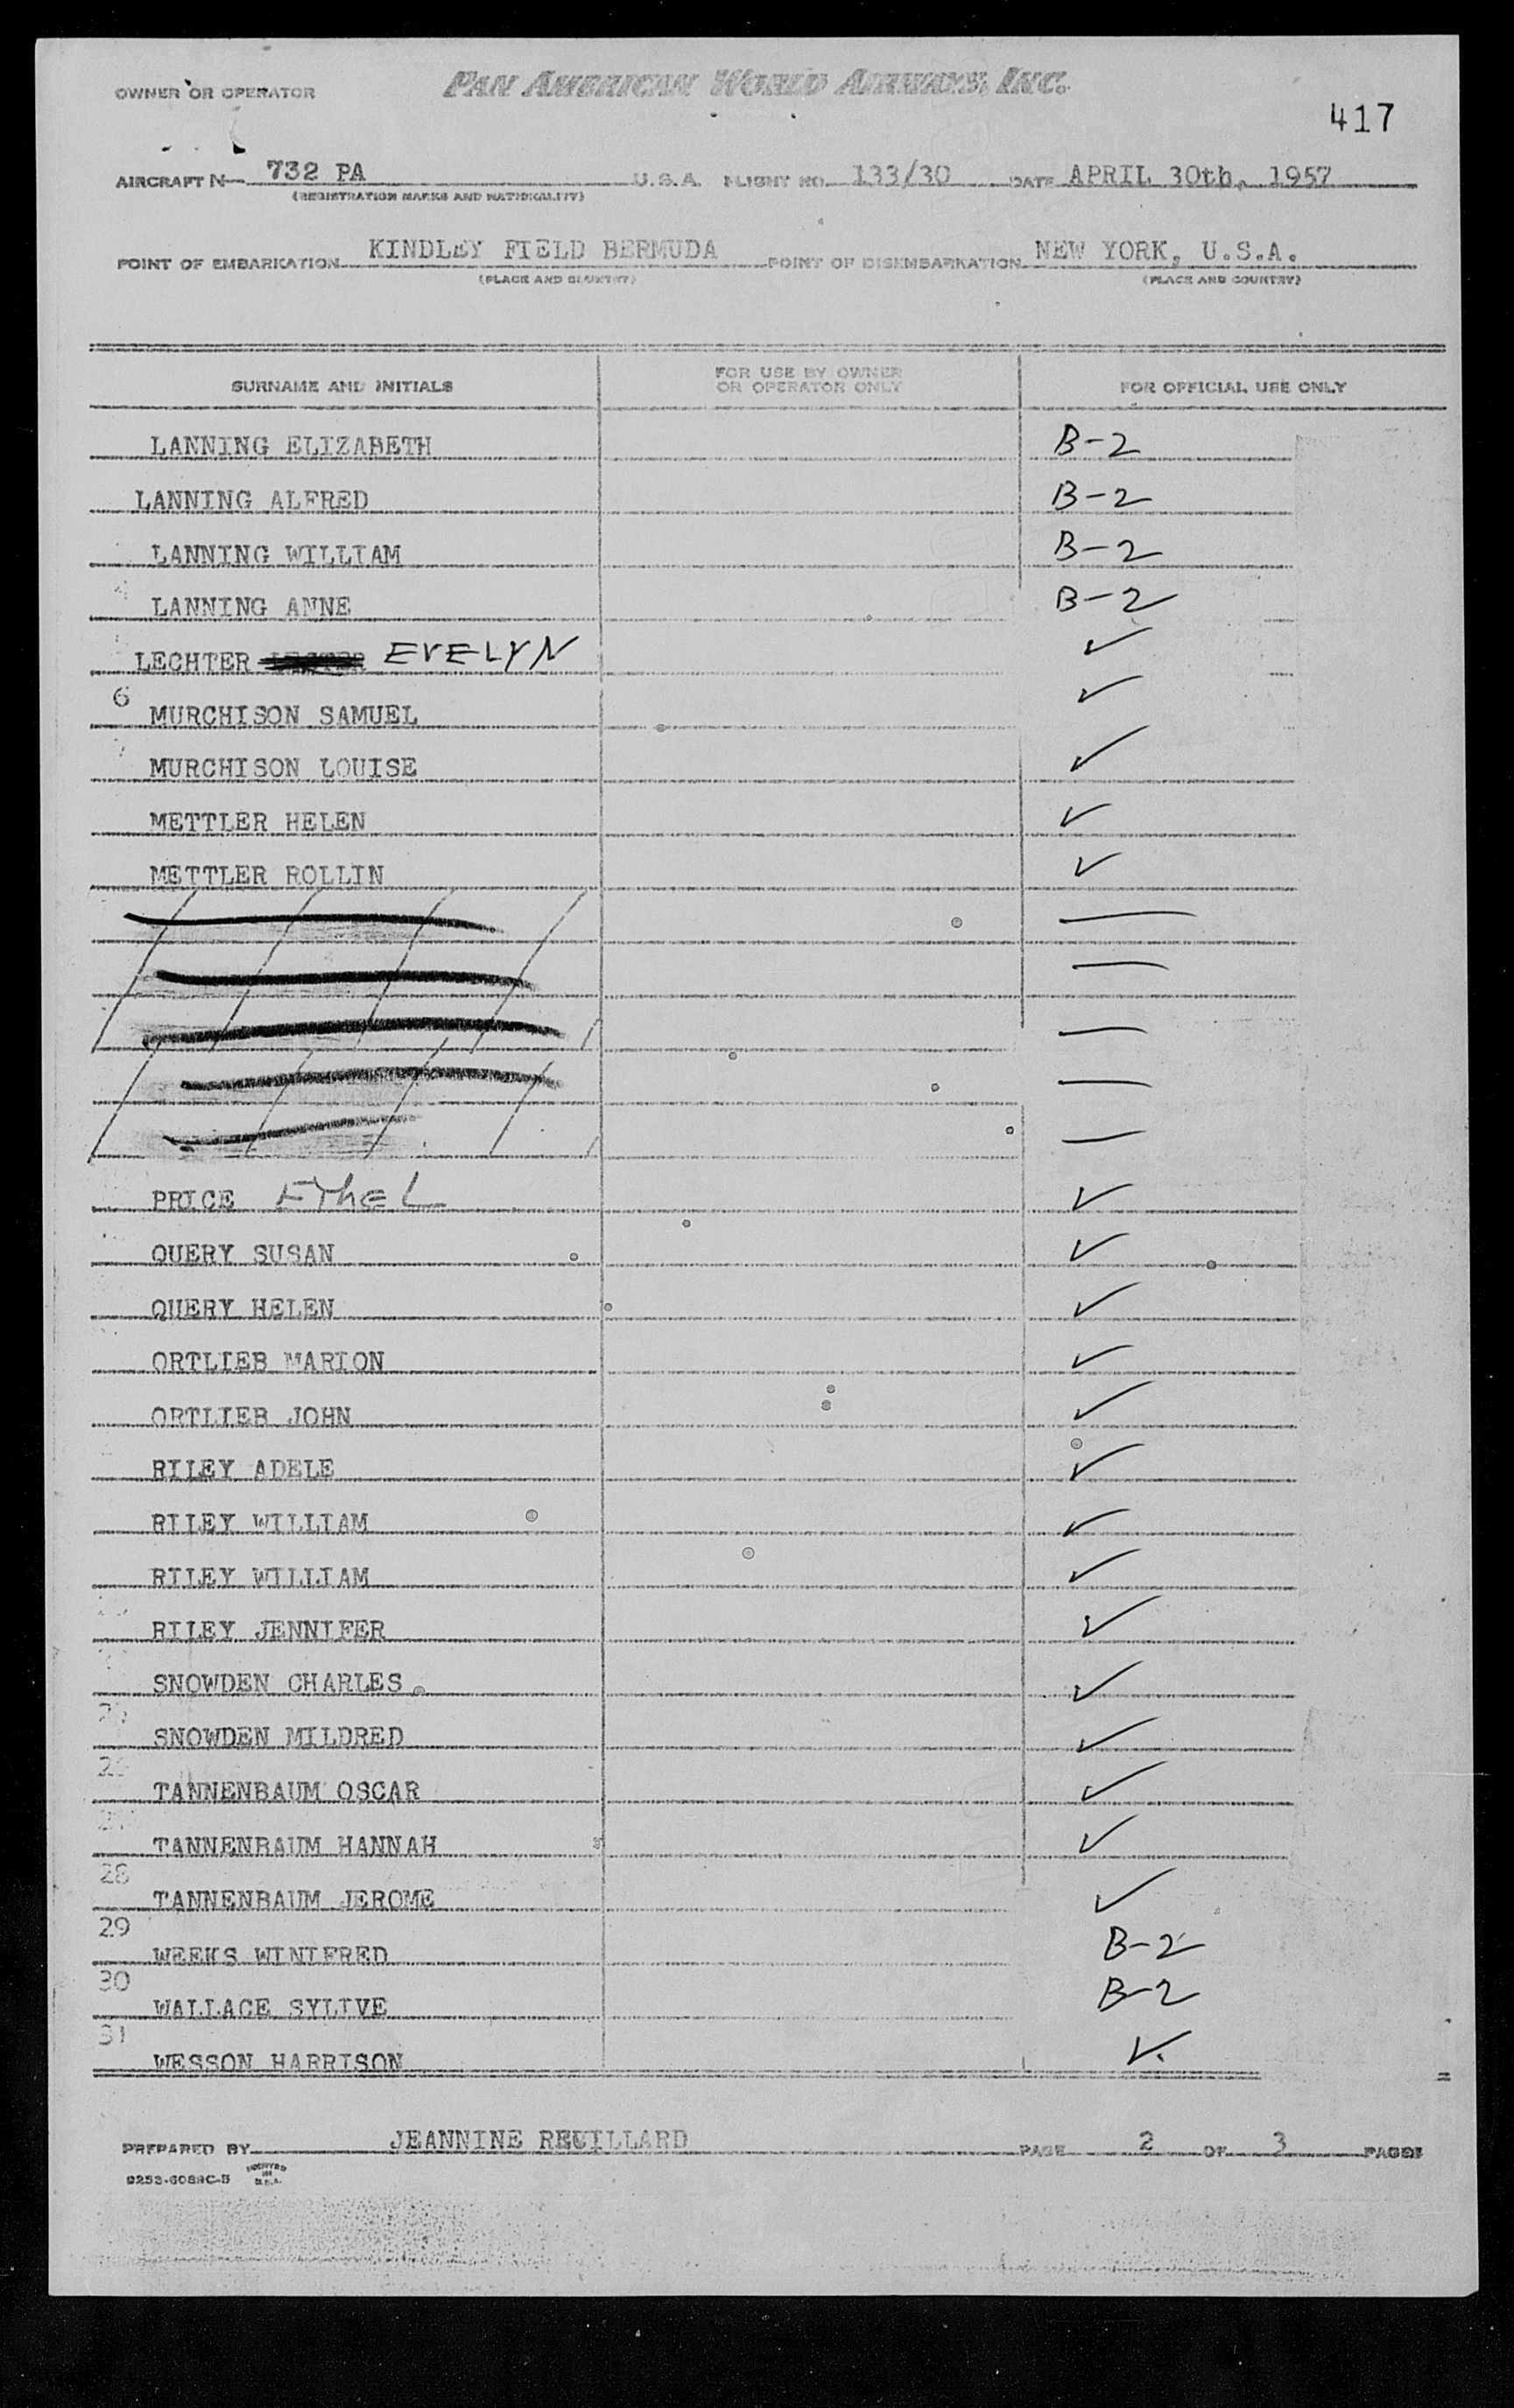 OWNER OR OPERATOR PAN AMERICAN WORLD AIRWAYS, INC.
417
AIRCRAFT N 732 PA U.S.A. FLIGHT NO. 133/30 DATE APRIL 30th, 1957
(REGISTRATION MARKS AND NATIONALITY)
POINT OF EMBARKATION KINDLEY FIELD BERMUDA POINT OF DISEMBARKATION NEW YORK, U.S.A.
(PLACE AND COUNTRY) (PLACE AND COUNTRY)
SURNAME AND INITIALS FOR USE BY OWNER OR OPERATOR ONLY FOR OFFICIAL USE ONLY
LANNING ELIZABETH B-2
LANNING ALFRED B-2
LANNING WILLIAM B-2
4 LANNING ANNE B-2
LECHTER EVELYN ✓
6 MURCHISON SAMUEL ✓
7 MURCHISON LOUISE ✓
METTLER HELEN ✓
METTLER ROLLIN ✓
—
—
—
—
—
PRICE EThEL ✓
QUERY SUSAN ✓
QUERY HELEN ✓
ORTLIEB MARION ✓
ORTLIEB JOHN ✓
RILEY ADELE ✓
RILEY WILLIAM ✓
RILEY WILLIAM ✓
RILEY JENNIFER ✓
SNOWDEN CHARLES ✓
SNOWDEN MILDRED ✓
TANNENBAUM OSCAR ✓
TANNENBAUM HANNAH ✓
28 TANNENBAUM JEROME ✓
29 WEEKS WINIFRED B-2
30 WALLACE SYLIVE B-2
31 WESSON HARRISON ✓
PREPARED BY JEANNINE REUILLARD PAGE 2 OF 3 PAGES
9253-608RC-5 PRINTED IN U.S.A.